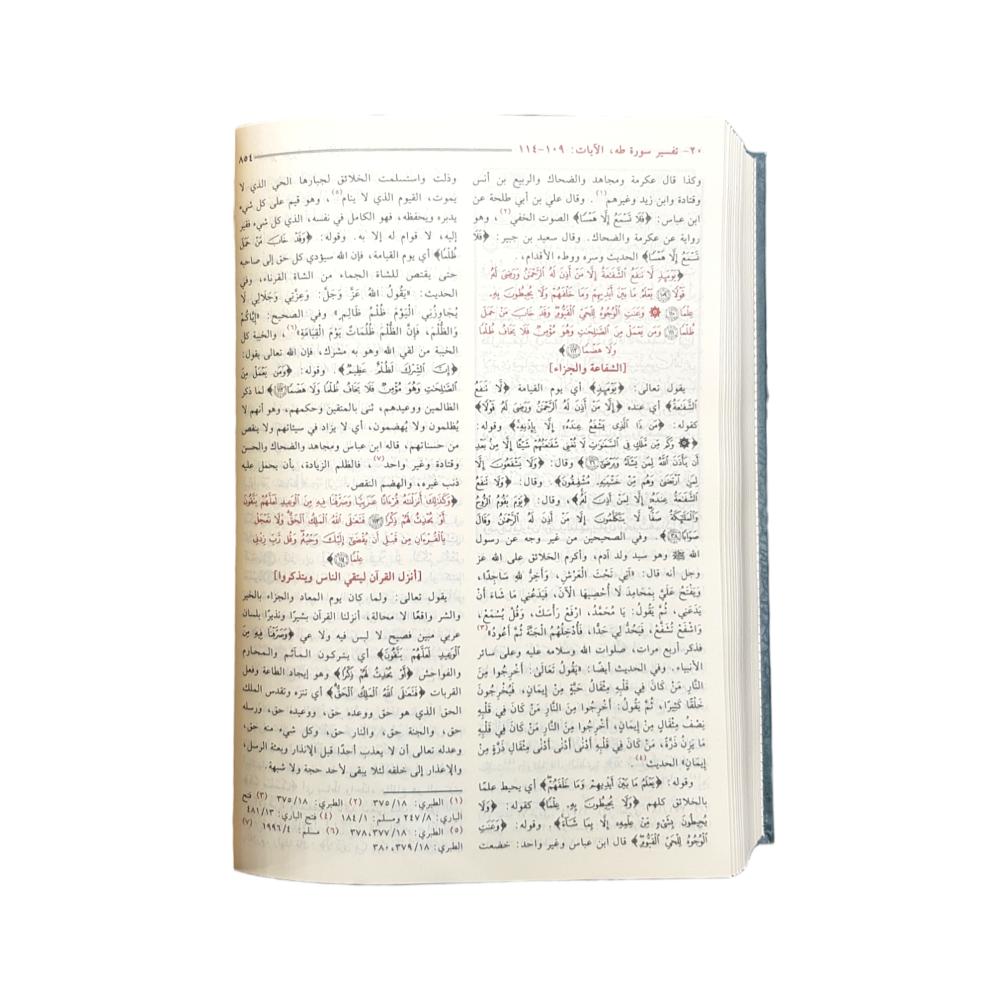 ٢٠- تفسير سورة طه، الآيات: ١٠٩-١١٤
٨٥٤
وكذا قال عكرمة ومجاهد والضحاك والربيع بن أنس
وقتادة وابن زيد وغيرهم(١). وقال علي بن أبي طلحة عن
ابن عباس: ﴿فَلَا تَسْمَعُ إِلَّا هَمْسًا﴾ الصوت الخفي(٢)، وهو
رواية عن عكرمة والضحاك. وقال سعيد بن جبير: ﴿فَلَا
تَسْمَعُ إِلَّا هَمْسًا﴾ الحديث وسره ووطء الأقدام.
﴿يَوْمَئِذٍ لَّا تَنفَعُ الشَّفَاعَةُ إِلَّا مَنْ أَذِنَ لَهُ الرَّحْمَٰنُ وَرَضِيَ لَهُ
قَوْلًا ﴿١٠٩﴾ يَعْلَمُ مَا بَيْنَ أَيْدِيهِمْ وَمَا خَلْفَهُمْ وَلَا يُحِيطُونَ بِهِ
عِلْمًا ﴿١١٠﴾ ۞ وَعَنَتِ الْوُجُوهُ لِلْحَيِّ الْقَيُّومِ وَقَدْ خَابَ مَنْ حَمَلَ
ظُلْمًا ﴿١١١﴾ وَمَن يَعْمَلْ مِنَ الصَّالِحَاتِ وَهُوَ مُؤْمِنٌ فَلَا يَخَافُ ظُلْمًا
وَلَا هَضْمًا ﴿١١٢﴾﴾
[الشفاعة والجزاء]
يقول تعالى: ﴿يَوْمَئِذٍ﴾ أي يوم القيامة ﴿لَّا تَنفَعُ
الشَّفَاعَةُ﴾ أي عنده ﴿إِلَّا مَنْ أَذِنَ لَهُ الرَّحْمَٰنُ وَرَضِيَ لَهُ قَوْلًا﴾
كقوله: ﴿مَن ذَا الَّذِي يَشْفَعُ عِندَهُ إِلَّا بِإِذْنِهِ﴾ وقوله:
﴿۞ وَكَم مِّن مَّلَكٍ فِي السَّمَاوَاتِ لَا تُغْنِي شَفَاعَتُهُمْ شَيْئًا إِلَّا مِن بَعْدِ
أَن يَأْذَنَ اللَّهُ لِمَن يَشَاءُ وَيَرْضَىٰ ﴿٢٦﴾﴾ وقال: ﴿وَلَا يَشْفَعُونَ إِلَّا
لِمَنِ ارْتَضَىٰ وَهُم مِّنْ خَشْيَتِهِ مُشْفِقُونَ﴾ وقال: ﴿وَلَا تَنفَعُ
الشَّفَاعَةُ عِندَهُ إِلَّا لِمَنْ أَذِنَ لَهُ﴾ وقال: ﴿يَوْمَ يَقُومُ الرُّوحُ
وَالْمَلَائِكَةُ صَفًّا لَّا يَتَكَلَّمُونَ إِلَّا مَنْ أَذِنَ لَهُ الرَّحْمَٰنُ وَقَالَ
صَوَابًا ﴿٣٨﴾﴾. وفي الصحيحين من غير وجه عن رسول
الله ﷺ وهو سيد ولد آدم، وأكرم الخلائق على الله عز
وجل أنه قال: «آتِي تَحْتَ الْعَرْشِ، وَأَخِرُّ للهِ سَاجِدًا،
وَيَفْتَحُ عَلَيَّ بِمَحَامِدَ لَا أُحْصِيهَا الْآنَ، فَيَدَعُنِي مَا شَاءَ أَنْ
يَدَعَنِي، ثُمَّ يَقُولُ: يَا مُحَمَّدُ، ارْفَعْ رَأْسَكَ، وَقُلْ يُسْمَعْ،
وَاشْفَعْ تُشَفَّعْ، فَيَحُدُّ لِي حَدًّا، فَأُدْخِلُهُمُ الْجَنَّةَ ثُمَّ أَعُودُ»(٣)
فذكر أربع مرات، صلوات الله وسلامه عليه وعلى سائر
الأنبياء. وفي الحديث أيضًا: «يَقُولُ تَعَالَىٰ: أَخْرِجُوا مِنَ
النَّارِ مَنْ كَانَ فِي قَلْبِهِ مِثْقَالُ حَبَّةٍ مِنْ إِيمَانٍ، فَيُخْرِجُونَ
خَلْقًا كَثِيرًا، ثُمَّ يَقُولُ: أَخْرِجُوا مِنَ النَّارِ مَنْ كَانَ فِي قَلْبِهِ
نِصْفُ مِثْقَالٍ مِنْ إِيمَانٍ، أَخْرِجُوا مِنَ النَّارِ مَنْ كَانَ فِي قَلْبِهِ
مَا يَزِنُ ذَرَّةً، مَنْ كَانَ فِي قَلْبِهِ أَدْنَى أَدْنَى أَدْنَى مِثْقَالِ ذَرَّةٍ مِنْ
إِيمَانٍ» الحديث(٤).
وقوله: ﴿يَعْلَمُ مَا بَيْنَ أَيْدِيهِمْ وَمَا خَلْفَهُمْ﴾ أي يحيط علمًا
بالخلائق كلهم ﴿وَلَا يُحِيطُونَ بِهِ عِلْمًا﴾ كقوله: ﴿وَلَا
يُحِيطُونَ بِشَيْءٍ مِّنْ عِلْمِهِ إِلَّا بِمَا شَاءَ﴾. وقوله: ﴿وَعَنَتِ
الْوُجُوهُ لِلْحَيِّ الْقَيُّومِ﴾ قال ابن عباس وغير واحد: خضعت
وذلت واستسلمت الخلائق لجبارها الحي الذي لا
يموت، القيوم الذي لا ينام(٥)، وهو قيم على كل شيء
يدبره ويحفظه، فهو الكامل في نفسه، الذي كل شيء فقير
إليه، لا قوام له إلا به. وقوله: ﴿وَقَدْ خَابَ مَنْ حَمَلَ
ظُلْمًا﴾ أي يوم القيامة، فإن الله سيؤدي كل حق إلى صاحبه
حتى يقتص للشاة الجماء من الشاة القرناء، وفي
الحديث: «يَقُولُ اللهُ عَزَّ وَجَلَّ: وَعِزَّتِي وَجَلَالِي لَا
يُجَاوِزُنِي الْيَوْمَ ظُلْمُ ظَالِمٍ» وفي الصحيح: «إِيَّاكُمْ
وَالظُّلْمَ، فَإِنَّ الظُّلْمَ ظُلُمَاتٌ يَوْمَ الْقِيَامَةِ»(٦)، والخيبة كل
الخيبة من لقي الله وهو به مشرك، فإن الله تعالى يقول:
﴿إِنَّ الشِّرْكَ لَظُلْمٌ عَظِيمٌ﴾. وقوله: ﴿وَمَن يَعْمَلْ مِنَ
الصَّالِحَاتِ وَهُوَ مُؤْمِنٌ فَلَا يَخَافُ ظُلْمًا وَلَا هَضْمًا ﴿١١٢﴾﴾ لما ذكر
الظالمين ووعيدهم، ثنى بالمتقين وحكمهم، وهو أنهم لا
يُظلمون ولا يُهضمون، أي لا يزاد في سيئاتهم ولا ينقص
من حسناتهم، قاله ابن عباس ومجاهد والضحاك والحسن
وقتادة وغير واحد(٧)، فالظلم الزيادة، بأن يحمل عليه
ذنب غيره، والهضم النقص.
﴿وَكَذَٰلِكَ أَنزَلْنَاهُ قُرْآنًا عَرَبِيًّا وَصَرَّفْنَا فِيهِ مِنَ الْوَعِيدِ لَعَلَّهُمْ يَتَّقُونَ
أَوْ يُحْدِثُ لَهُمْ ذِكْرًا ﴿١١٣﴾ فَتَعَالَى اللَّهُ الْمَلِكُ الْحَقُّ وَلَا تَعْجَلْ
بِالْقُرْآنِ مِن قَبْلِ أَن يُقْضَىٰ إِلَيْكَ وَحْيُهُ وَقُل رَّبِّ زِدْنِي
عِلْمًا ﴿١١٤﴾﴾
[أنزل القرآن ليتقي الناس ويتذكروا]
يقول تعالى: ولما كان يوم المعاد والجزاء بالخير
والشر واقعًا لا محالة، أنزلنا القرآن بشيرًا ونذيرًا بلسان
عربي مبين فصيح لا لبس فيه ولا عي ﴿وَصَرَّفْنَا فِيهِ مِنَ
الْوَعِيدِ لَعَلَّهُمْ يَتَّقُونَ﴾ أي يتركون المآثم والمحارم
والفواحش ﴿أَوْ يُحْدِثُ لَهُمْ ذِكْرًا﴾ وهو إيجاد الطاعة وفعل
القربات ﴿فَتَعَالَى اللَّهُ الْمَلِكُ الْحَقُّ﴾ أي تنزه وتقدس الملك
الحق الذي هو حق ووعده حق، ووعيده حق، ورسله
حق، والجنة حق، والنار حق، وكل شيء منه حق،
وعدله تعالى أن لا يعذب أحدًا قبل الإنذار وبعثة الرسل،
والإعذار إلى خلقه لئلا يبقى لأحد حجة ولا شبهة.
(١) الطبري: ٣٧٥/١٨ (٢) الطبري: ٣٧٥/١٨ (٣) فتح
الباري: ٢٤٧/٨ ومسلم: ١٨٤/١ (٤) فتح الباري: ٤٨١/١٣
(٥) الطبري: ٣٧٨،٣٧٧/١٨ (٦) مسلم: ١٩٩٦/٤ (٧)
الطبري: ٣٨٠،٣٧٩/١٨